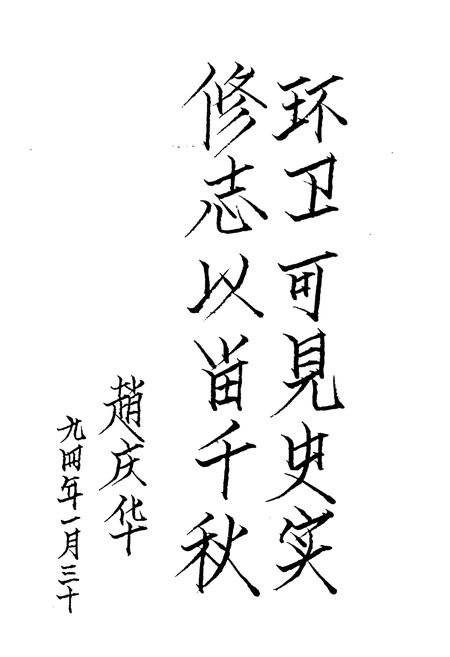 环卫可見史实
修志以畄千秋
趙庆华
九四年一月三十